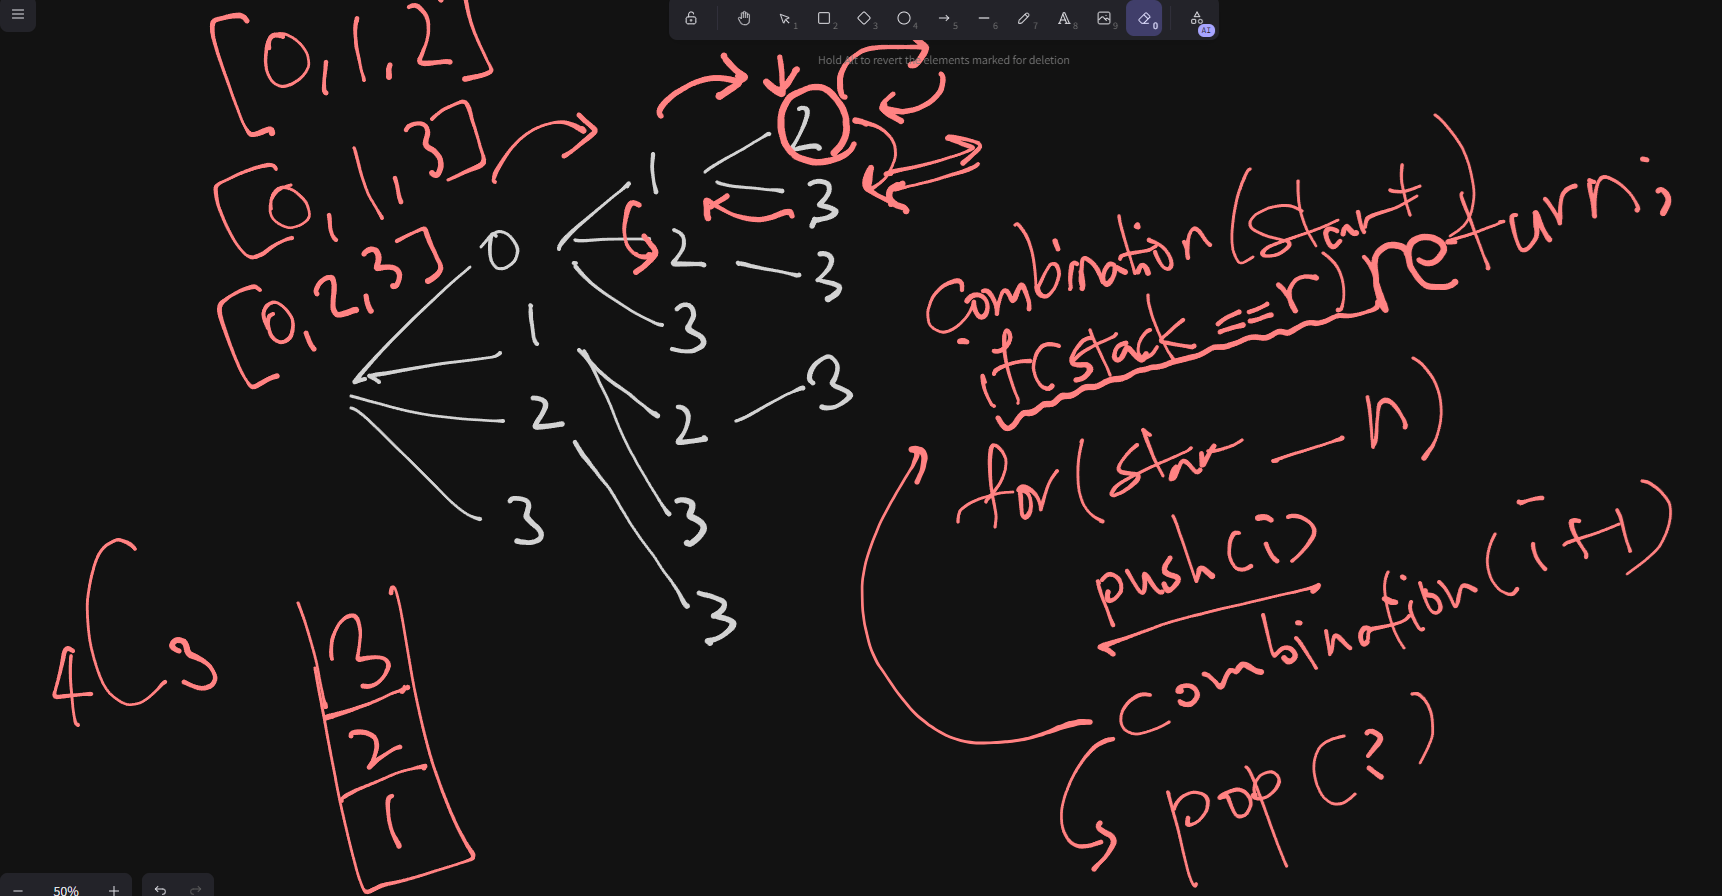 1 2 3 4 5 6 7 8 9 0
AI
Hold Alt to revert the elements marked for deletion
[0,1,2]
[0,1,3]
[0,2,3]
0
1
2
3
1
2
3
2
3
3
2
3
3
3
combination(start)
if(stack ==r) return;
for(star — n)
push(i)
combination(i+1)
pop(?)
4C3
3
2
1
50%